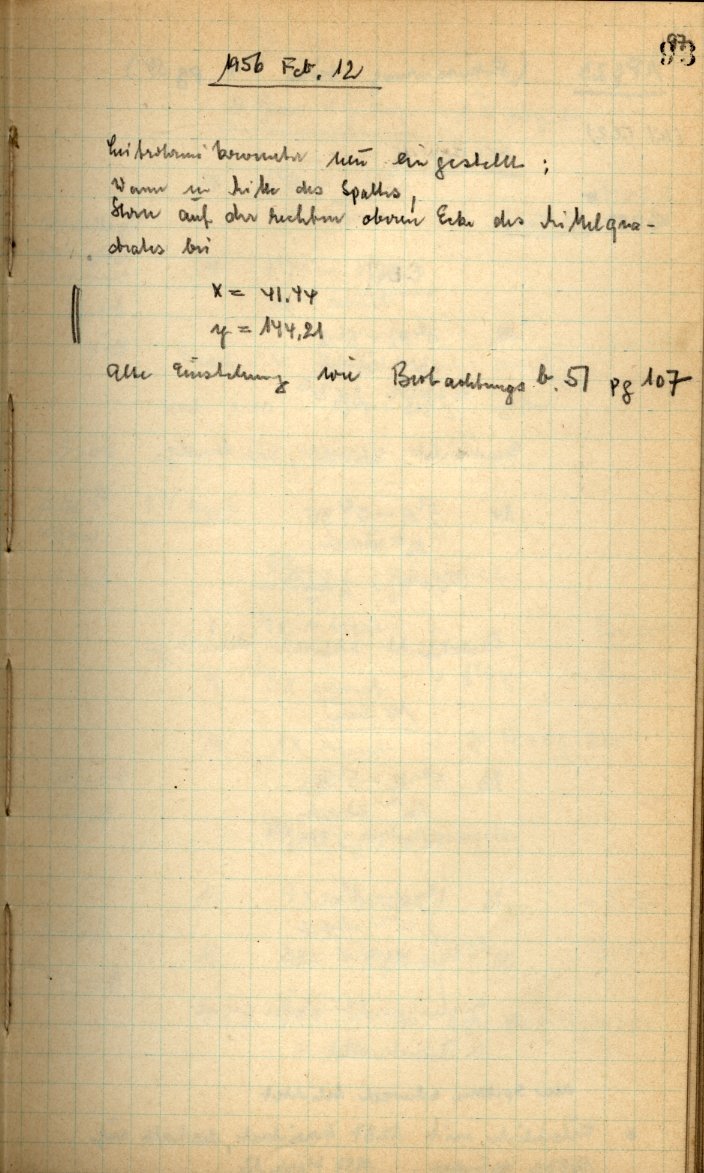 97
93
1956 Feb. 12
Leitrohrmikrometer neu eingestellt :
Wenn in Mitte des Spaltes,
Stern auf der rechten oberen Ecke des Mittelqua-
drates bei
x = 41.44
y = 144,21
Alte Einstellung wie Beobachtungs b. 51 pg 107